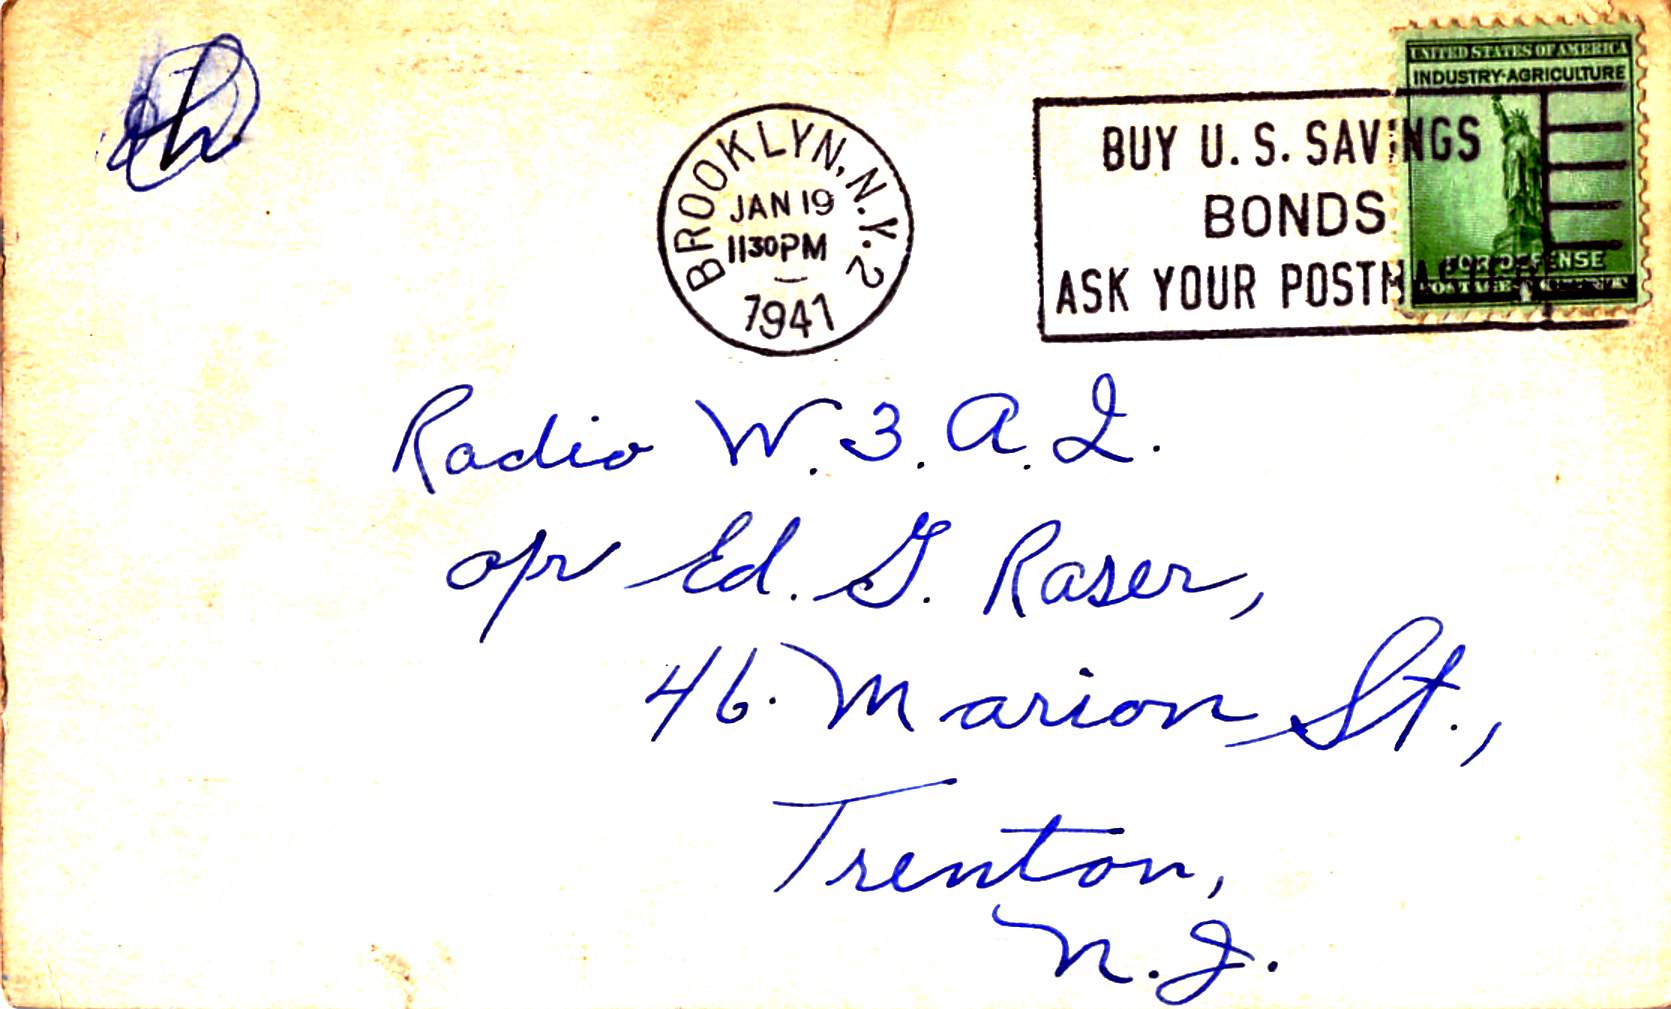 BROOKLYN, N.Y. 2
JAN 19
11 30 PM
1941
BUY U.S. SAVINGS
BONDS
ASK YOUR POSTMASTER
UNITED STATES OF AMERICA
INDUSTRY-AGRICULTURE
FOR DEFENSE
POSTAGE
Radio W.3.A.I.
opr Ed. G. Raser,
46. Marion St.,
Trenton,
N.J.